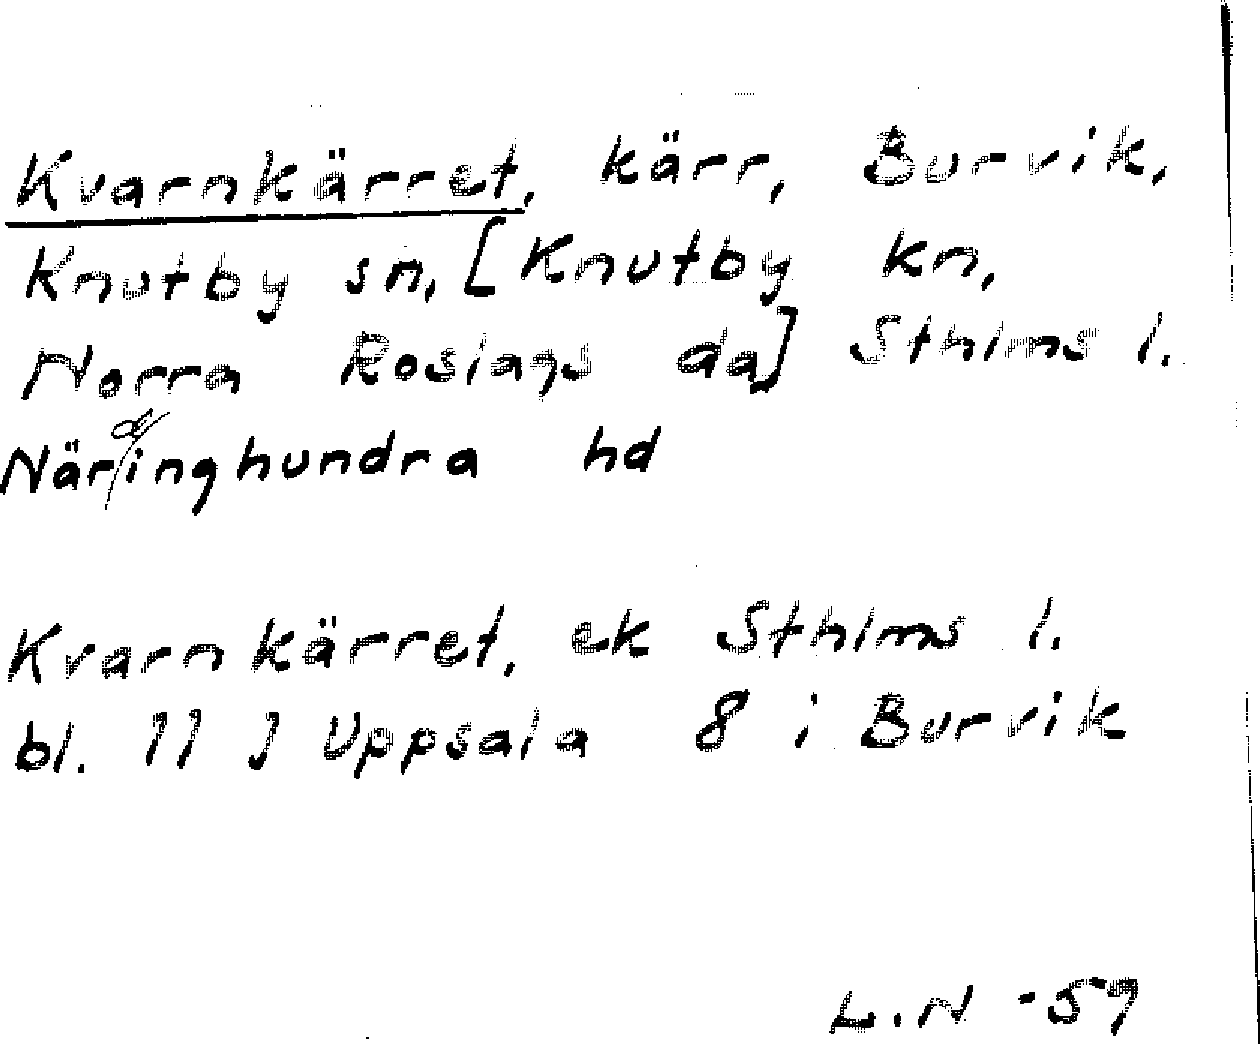 Kvarnkärret, kärr, Burvik,
Knutby sn, [Knutby kn,
Norra Roslags da] Sthlms l.
Närdinghundra hd
Kvarnkärret, ek Sthlms l.
bl. 11 J Uppsala 8 i Burvik
L.N -59